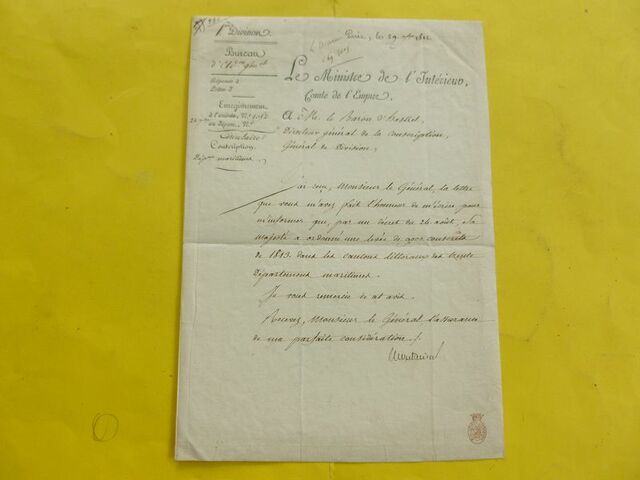 1re Division.
Bureau
d'Adm.on gale
Paris, le 29 1811
Le Ministre de l'Intérieur,
Comte de l'Empire,
Enregistrement
à l'arrivée, N.o
au Départ, N.o
Conscription.
Dép.ens maritimes.
A M. le Baron d'Hastrel,
Directeur général de la conscription,
Général de Division,
J'ai reçu, Monsieur le Général, la lettre
que vous m'avez fait l'honneur de m'écrire pour
m'informer que, par un décret du 24 août, Sa
majesté a ordonné une levée de conscrits
de 1813 dans les cantons littoraux des trente
Départemens maritimes.
Je vous remercie de cet avis.
Recevez, Monsieur le Général, l'assurance
de ma parfaite considération.
Montalivet